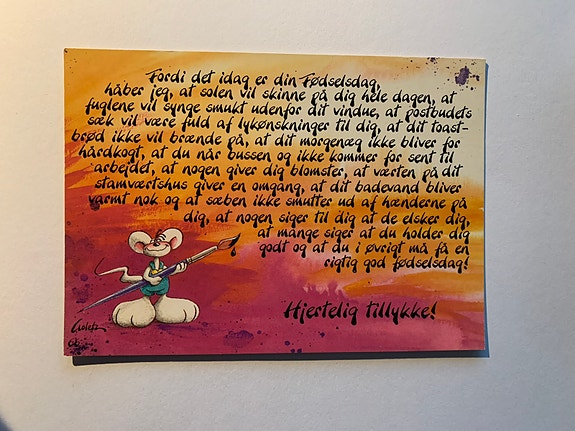 Fordi det idag er din Fødselsdag,
håber jeg, at solen vil skinne på dig hele dagen, at
fuglene vil synge smukt udenfor dit vindue, at postbudets
sæk vil være fuld af lykønskninger til dig, at dit toast-
brød ikke vil brænde på, at dit morgenæg ikke bliver for
hårdkogt, at du når bussen og ikke kommer for sent til
arbejdet, at nogen giver dig blomster, at værten på dit
stamværtshus giver en omgang, at dit badevand bliver
varmt nok og at sæben ikke smutter ud af hænderne på
dig, at nogen siger til dig at de elsker dig,
at mange siger at du holder dig
godt og at du i øvrigt må få en
rigtig god fødselsdag!
Hjertelig tillykke!